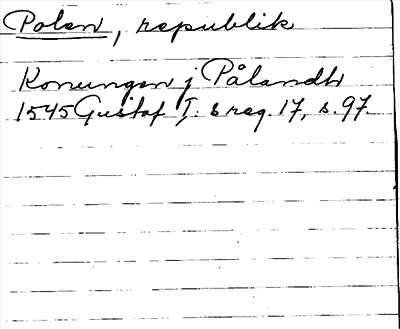 Polen, republik
Konungen j Pålandh
1545 Gustaf I: s reg. 17, s. 97.